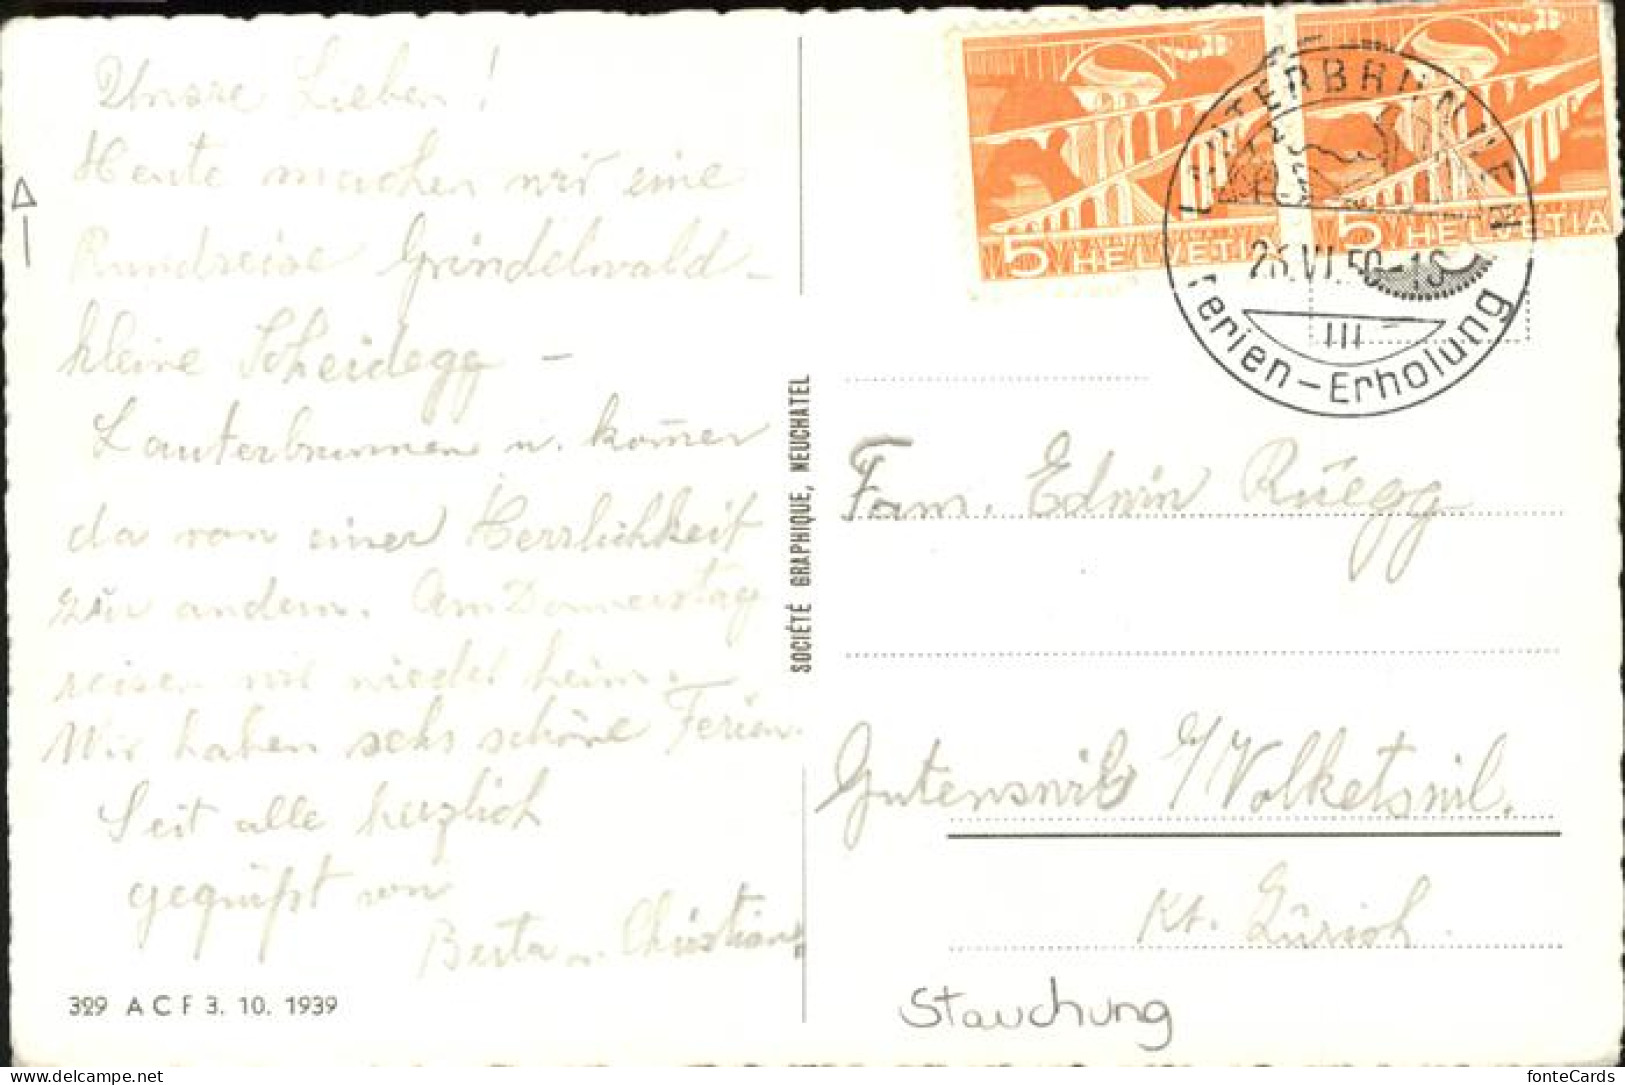 Unsere Lieben!
Heute machen wir eine
Rundreise Grindelwald –
kleine Scheidegg –
Lauterbrunnen u. kom̅en
da von einer Herrlichkeit
zur andern. Am Donnerstag
reisen wir wieder heim.
Wir haben sehr schöne Ferien.
Seit alle herzlich
gegrüßt von
Berta u. Christian
329 A C F 3. 10. 1939
SOCIÉTÉ GRAPHIQUE, NEUCHATEL
5 HELVETIA
5 HELVETIA
LAUTERBRUNNEN
26.VI.50-18
III
Ferien-Erholung
Fam. Edwin Rüegg
Gutenswil b/Volketswil.
Kt. Zürich.
Stauchung
delcampe.net
fonteCards